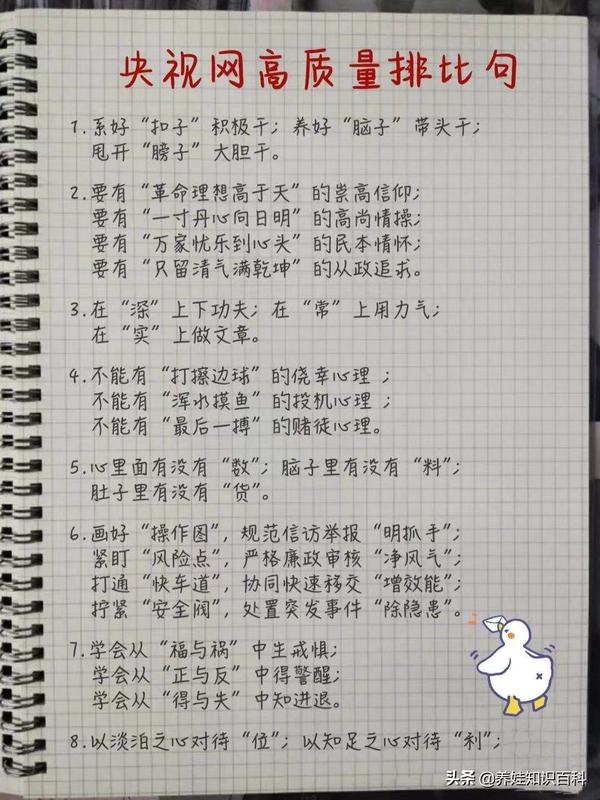 央视网高质量排比句
1.系好“扣子”积极干；养好“脑子”带头干；
甩开“膀子”大胆干。
2.要有“革命理想高于天”的崇高信仰；
要有“一寸丹心向日明”的高尚情操；
要有“万家忧乐到心头”的民本情怀；
要有“只留清气满乾坤”的从政追求。
3.在“深”上下功夫；在“常”上用力气；
在“实”上做文章。
4.不能有“打擦边球”的侥幸心理；
不能有“浑水摸鱼”的投机心理；
不能有“最后一搏”的赌徒心理。
5.心里面有没有“数”；脑子里有没有“料”；
肚子里有没有“货”。
6.画好“操作图”，规范信访举报“明抓手”；
紧盯“风险点”，严格廉政审核“净风气”；
打通“快车道”，协同快速移交“增效能”；
拧紧“安全阀”，处置突发事件“除隐患”。
7.学会从“福与祸”中生戒惧；
学会从“正与反”中得警醒；
学会从“得与失”中知进退。
8.以淡泊之心对待“位”；以知足之心对待“利”；
头条 @养娃知识百科